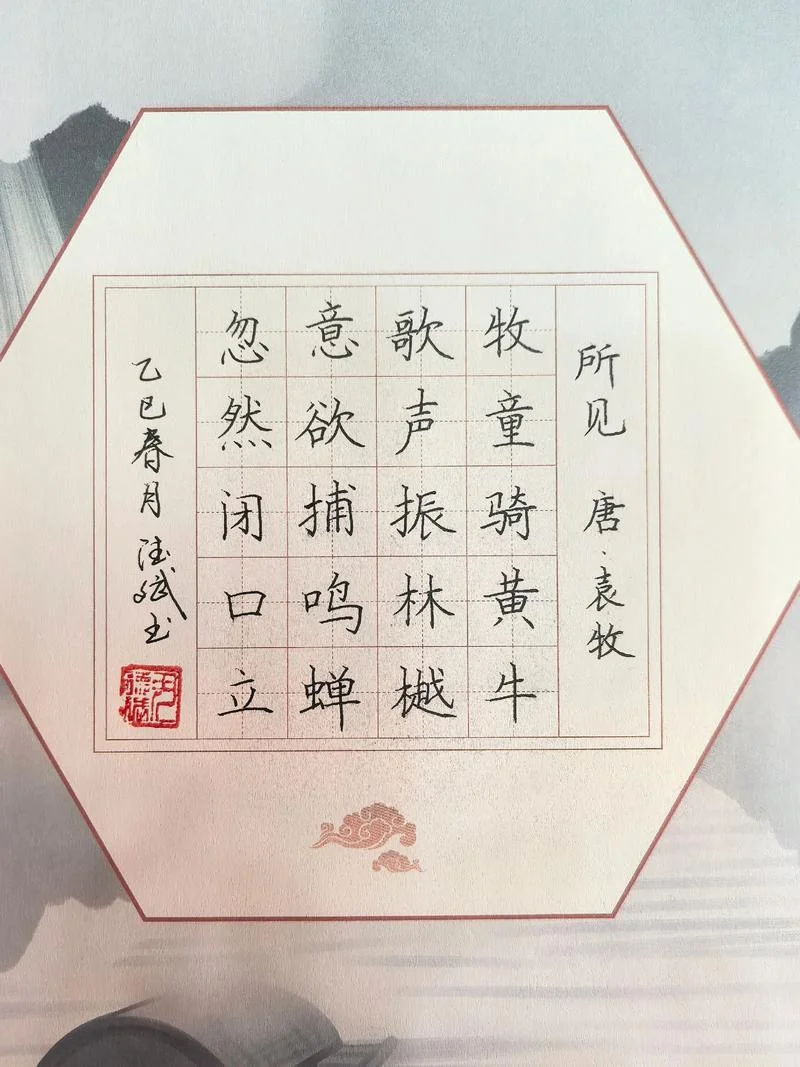 所见 唐·袁牧
牧童骑黄牛
歌声振林樾
意欲捕鸣蝉
忽然闭口立
乙巳春月德斌书